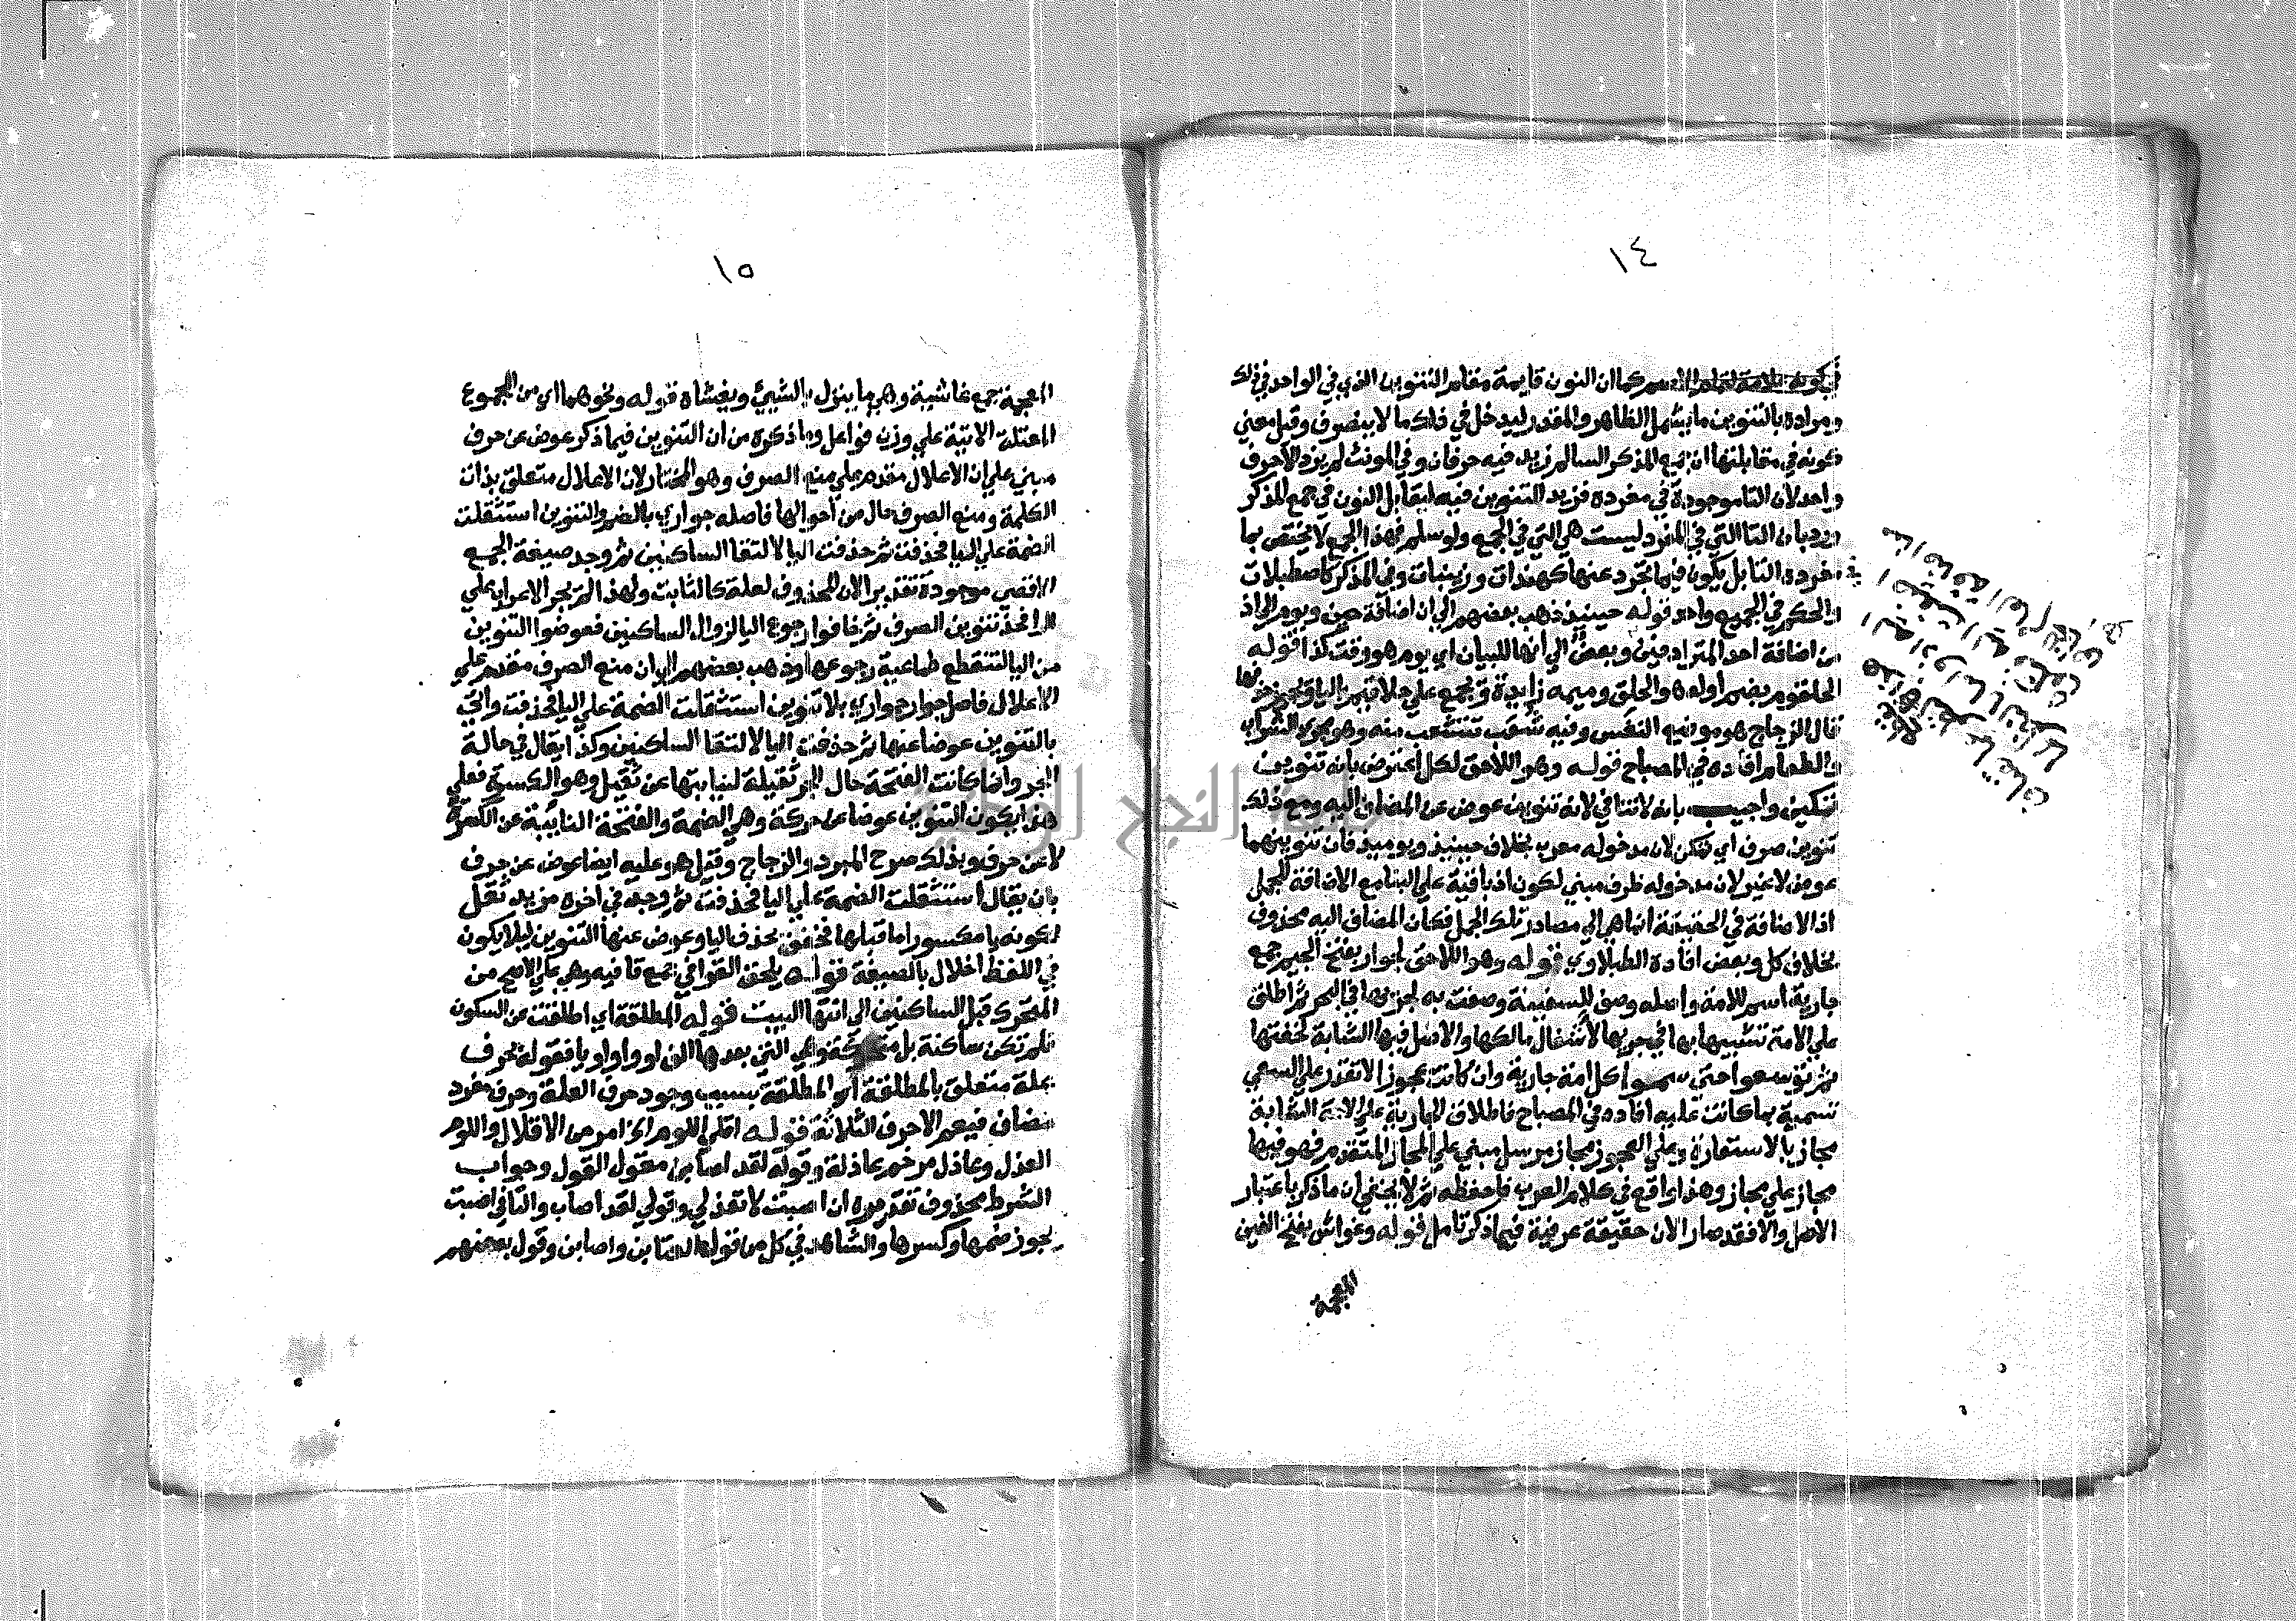 ١٤
في كونه علامة لتمام الاسم كما ان النون قايمة مقام التنوين الذي في الواحد في ذلك
ومراده بالتنوين ما يشمل الظاهر والمقدر ليدخل في ذلك ما لا ينصرف وقيل معني
كونه في مقابلتها ان جمع المذكر السالم زيد فيه حرفان وفي المونث لم يزد الا حرف
واحد لان التا موجودة في مفرده فزيد التنوين فيه ليقابل النون في جمع المذكر
ورد بان التا التي في المفرد ليست هي التي في الجمع ولو سلم فهذا الجمع لا يختص بما
في مفرده التا بل يكون فيما تجرد عنها كهندات وزينبات وفي المذكر كاصطبلات
والحكم في الجميع واحد قوله حينيذ ذهب بعضهم الي ان اضافة حين ويوم الي اذ
من اضافة احد المترادفين وبعض الي انها للبيان اي يوم هو وقت كذا قوله
الحلقوم بضم اوله هو الحلق وميمه زايدة ويجمع علي حلاقيم باليا ويجوز حذفها
قال الزجاج هو موضع النفس وفيه شعب تتشعب منه وهو مجري الشراب
والطعام افاده في المصباح قوله وهو اللاحق لكل اعترض بانه تنوين
تمكين واجيب بانه لا تنافي لانه تنوين عوض عن المضاف اليه ومع ذلك
تنوين صرف اي تمكن لان مدخوله معرب بخلاف حينيذ ويوميذ فان تنوينهما
عوض لا غير لان مدخوله ظرف مبني لكون اذ باقية علي البنا مع الاضافة للجمل
اذ الاضافة في الحقيقة انما هي الي مصادر تلك الجمل فكان المضاف اليه محذوف
بخلاف كل وبعض افاده الطبلاوي قوله وهو اللاحق لجوار بفتح الجيم جمع
جارية اسم للامة واصله وصف للسفينة وصفت به لجريها في البحر ثم اطلق
علي الامة تشبيها بها في جريها لاشغال مالكها والاصل فيها الشابة لخفتها
ثم توسعوا حتي سموا كل امة جارية وان كانت عجوزا لا تقدر علي السعي
تسمية بما كانت عليه افاده في المصباح فاطلاق الجارية علي الامة الشابة
مجاز بالاستعارة وعلي العجوز مجاز مرسل مبني علي المجاز المتقدم فهو فيها
مجاز علي مجاز وهذا واقع في كلام العرب فاحفظه ثم لا يخفي ان ما ذكر باعتبار
الاصل والا فقد صار الان حقيقة عرفية فيما ذكر تامل قوله وغواش بفتح الغين
المعجمة
١٥
المعجمة جمع غاشية وهي ما ينزل بالشيئ ويغشاه قوله ونحوهما اي من الجموع
المعتلة الاتية علي وزن فواعل وما ذكره من ان التنوين فيما ذكر عوض عن حرف
مبني علي ان الاعلال مقدم علي منع الصرف وهو المختار لان الاعلال متعلق بذات
الكلمة ومنع الصرف حال من احوالها فاصله جواري بالضم والتنوين استثقلت
الضمة علي اليا فحذفت ثم حذفت اليا لالتقا الساكنين ثم وجد صيغة الجمع
الاقصي موجودة تقديرا لان المحذوف لعلة كالثابت ولهذا لم يجر الاعراب علي
الرا فحذف تنوين الصرف ثم خافوا رجوع اليا لزوال الساكنين فعوضوا التنوين
من اليا لتنقطع طماعية رجوعها وذهب بعضهم الي ان منع الصرف مقدم علي
الاعلال فاصل جوار جواري بلا تنوين استثقلت الضمة علي اليا فحذفت واتي
بالتنوين عوضا عنها ثم حذفت اليا لالتقا الساكنين وكذا يقال في حالة
الجر وانما كانت الفتحة حال الجر ثقيلة لنيابتها عن ثقيل وهو الكسرة فعلي
هذا يكون التنوين عوضا عن حركة وهي الضمة والفتحة النائبة عن الكسرة
لا عن حرف وبذلك صرح المبرد والزجاج وقيل هو عليه ايضا عوض عن حرف
بان يقال استثقلت الضمة علي اليا فحذفت ثم وجد في اخره مزيد ثقل
لكونه يا مكسورا ما قبلها فخفف بحذف اليا وعوض عنها التنوين ليلا يكون
في اللفظ اخلال بالصيغة قوله يلحق القوافي جمع قافيه وهي علي الاصح من
المتحرك قبل الساكنين الي انتها البيت قوله المطلقة اي اطلقت عن السكون
فلم تكن ساكنة بل متحركة وهي التي بعدها الف او واو او يا فقوله بحرف
علة متعلق بالمطلقة اي المطلقة بسبب وجود حرف العلة وحرف مفرد
مضاف فيعم الاحرف الثلاثة قوله اقلي اللوم الخ امر من الاقلال واللوم
العذل وعاذل مرخم عاذلة وقوله لقد اصابن مقول القول وجواب
الشرط محذوف تقديره ان اصبت لا تعذلي وقولي لقد اصاب والتا في اصبت
يجوز ضمها وكسرها والشاهد في كل من قوله العتابن واصابن وقول بعضهم